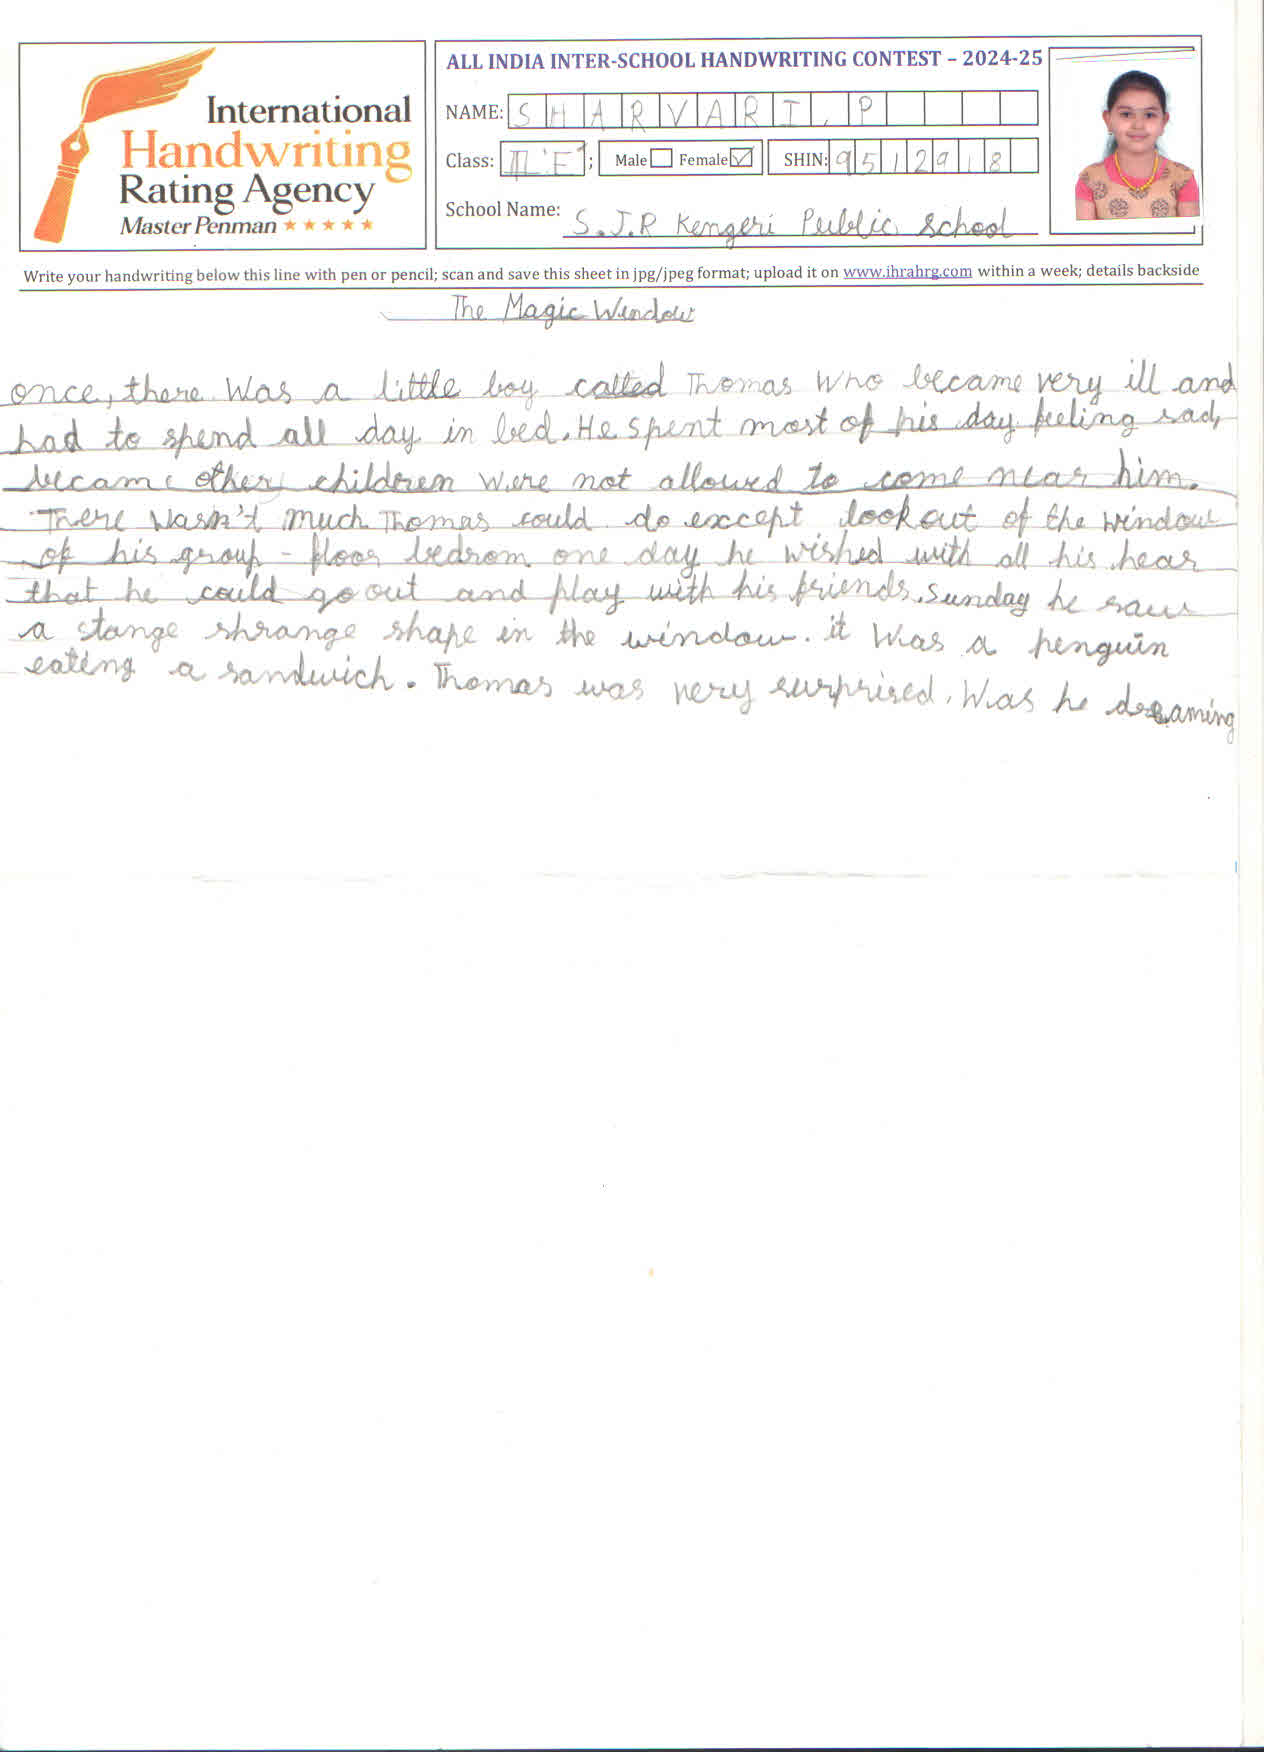 International
Handwriting
Rating Agency
Master Penman
ALL INDIA INTER-SCHOOL HANDWRITING CONTEST – 2024-25
NAME: SHARVARI. P
Class: III 'E'; Male Female SHIN: 9512918
School Name: S.J.R Kengeri Public School
Write your handwriting below this line with pen or pencil; scan and save this sheet in jpg/jpeg format; upload it on www.ihrahrg.com within a week; details backside
The Magic Window
once, there Was a little boy called Thomas Who became very ill and
had to spend all day in bed. He spent most of his day feeling sad,
became other children were not allowed to come near him.
There Wasn't Much Thomas could do except look out of the window
of his group - floor bedrom one day he wished with all his hear
that he could go out and play with his friends. Sunday he saw
a stange shrange shape in the window. it Was a penguin
eating a sandwich. Thomas was very surprised. Was he dreaming